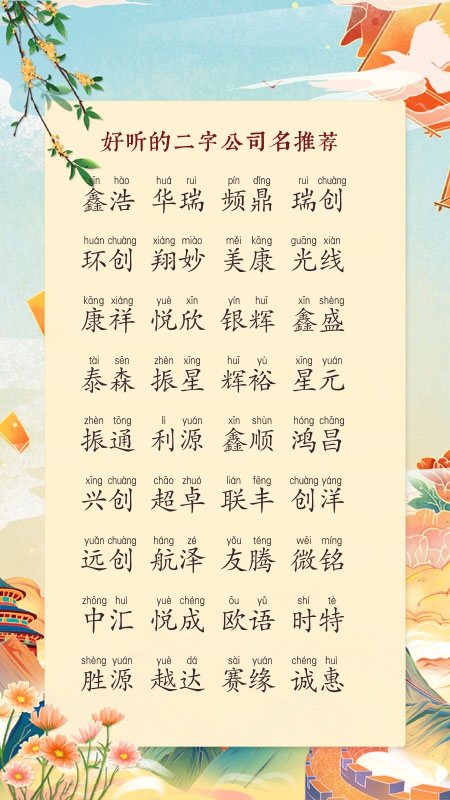 好听的二字公司名推荐
xīn hào huá ruì pín dǐng ruì chuàng
鑫浩 华瑞 频鼎 瑞创
huán chuàng xiáng miào měi kāng guāng xiàn
环创 翔妙 美康 光线
kāng xiáng yuè xīn yín huī xīn shèng
康祥 悦欣 银辉 鑫盛
tài sēn zhèn xīng huī yù xīng yuán
泰森 振星 辉裕 星元
zhèn tōng lì yuán xīn shùn hóng chāng
振通 利源 鑫顺 鸿昌
xīng chuàng chāo zhuó lián fēng chuàng yáng
兴创 超卓 联丰 创洋
yuǎn chuàng háng zé yǒu téng wēi míng
远创 航泽 友腾 微铭
zhōng huì yuè chéng ōu yǔ shí tè
中汇 悦成 欧语 时特
shèng yuán yuè dá sài yuán chéng huì
胜源 越达 赛缘 诚惠